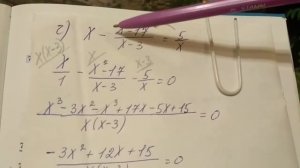 г) x - (x²-17)/(x-3) = 5/x
x(x-3) x x-3
x/1 - (x²-17)/(x-3) - 5/x = 0
(x³-3x²-x³+17x-5x+15)/(x(x-3)) = 0
-3x²+12x+15 = 0